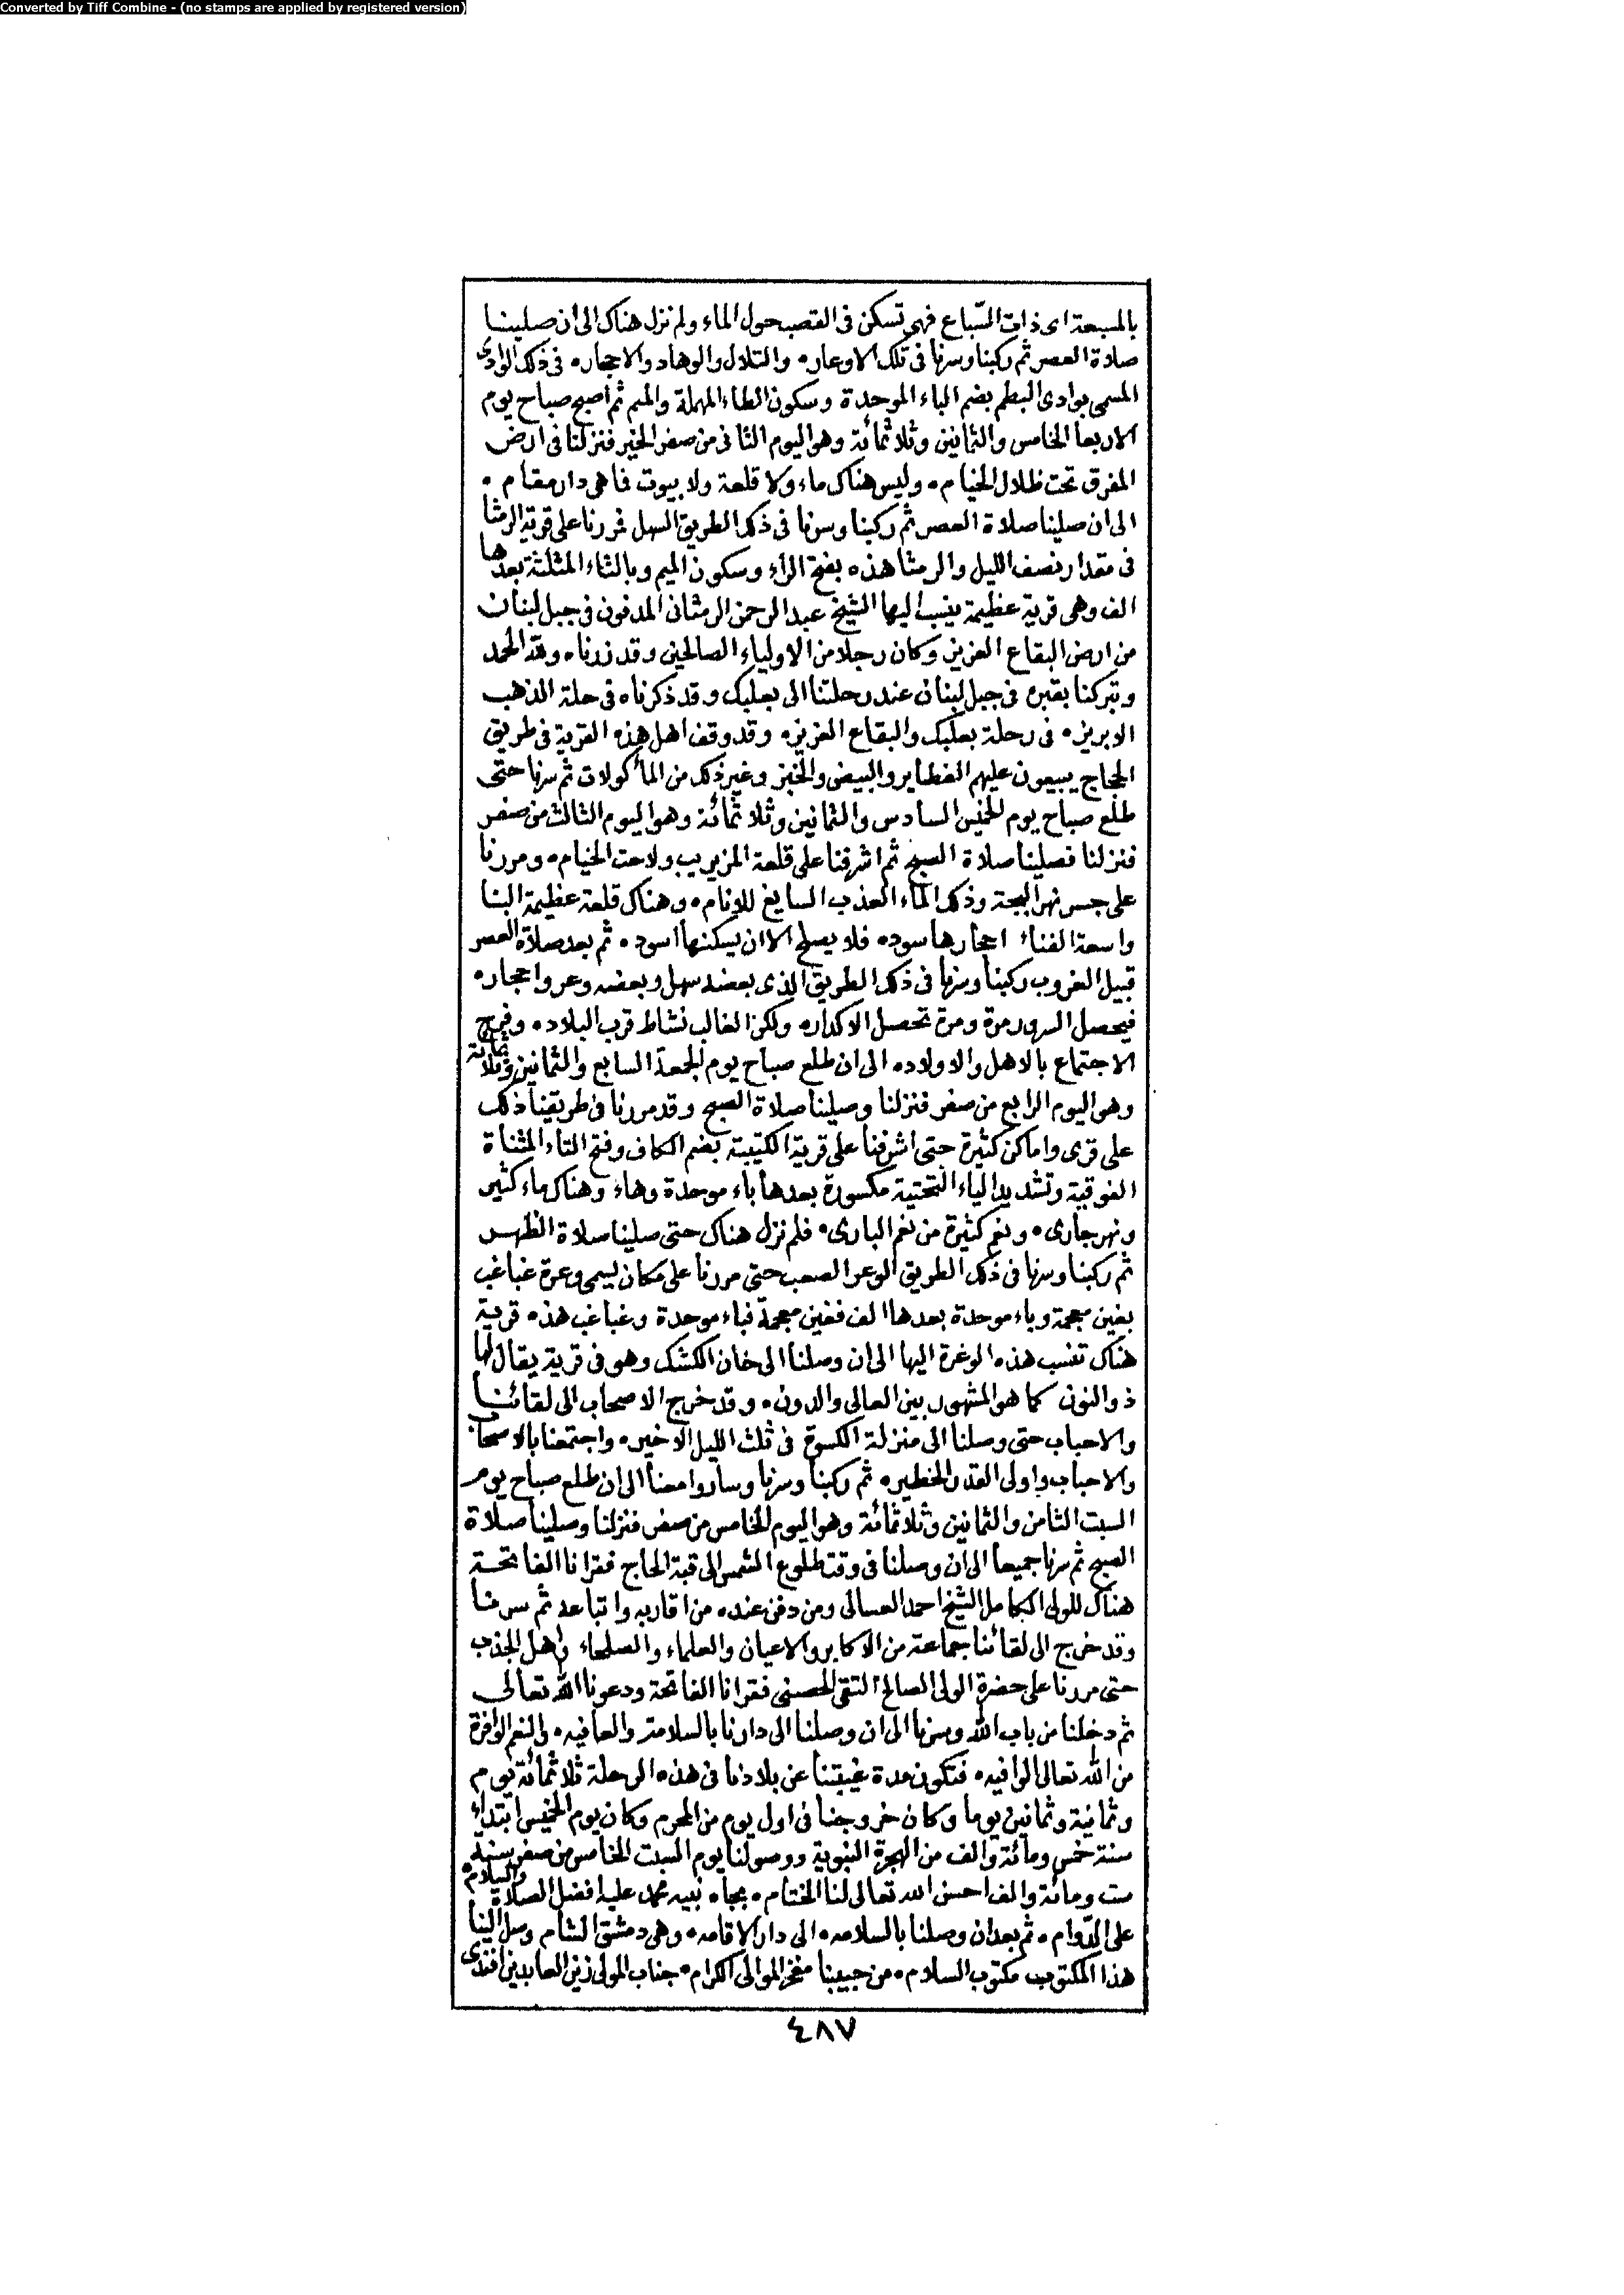 Converted by Tiff Combine - (no stamps are applied by registered version)
بالمسبعة اى ذات السّباع فهى تسكن فى القصب حول الماء ولم نزل هناك الى أن صلينا
صلاة العصر ثم ركبنا وسرنا فى تلك الاوعاره والتلال والوهاد والاحجاره فى ذلك الوادى
المسمى بوادى البطم بضم الباء الموحدة وسكون الطاء المهملة والميم ثم أصبح صباح يوم
الاربعا الخامس والثمانين وثلاثمائة وهو اليوم الثانى من صفر الخير فنزلنا فى ارض
المفرق تحت ظلال الخيام ۰ وليس هناك ماء ولا قلعة ولا بيوت فما هى دار مقام ۰
الى ان صلينا صلاة العصر ثم ركبنا وسرنا فى ذلك الطريق السهل فمررنا على قرية الرمثا
فى مقدار نصف الليل والرمثا هذه بفتح الراء وسكون الميم وبالثاء المثلثة بعدها
الف وهى قرية عظيمة ينسب اليها الشيخ عبد الرحمن الرمثانى المدفون فى جبل لبنان
من ارض البقاع العزيز وكان رجلا من الاولياء الصالحين وقد زرناه ولله الحمد
وتبركنا بقبره فى جبل لبنان عند رحلتنا الى بعلبك وقد ذكرناه فى حلة الذهب
الابريز ۰ فى رحلة بعلبك والبقاع العزيز ۰ وقد وقف اهل هذه القرية فى طريق
الحجاج يبيعون عليهم الفطاير والبيض والخبز وغير ذلك من المأكولات ثم سرنا حتى
طلع صباح يوم الخميس السادس والثمانين وثلاثمائة وهو اليوم الثالث من صفر
فنزلنا فصلينا صلاة الصبح ثم اشرفنا على قلعة المزيريب ولاحت الخيام ۰ ومررنا
على جسر نهر البجة وذلك الماء العذب السايغ للانام ۰ وهناك قلعة عظيمة البنا
واسعة الفناء احجارها سود ۰ فلا يصلح الا ان يسكنها أسود ۰ ثم بعد صلاة العصر
قبيل الغروب ركبنا وسرنا فى ذلك الطريق الذى بعضه سهل وبعضه وعر واحجار ۰
فيحصل السرور مرة ومرة تحصل الاكدار ۰ ولكن الغالب نشاط قرب البلاد ۰ وفرح
الاجتماع بالاهل والاولاد ۰ الى ان طلع صباح يوم الجمعة السابع والثمانين وثلاثمائة
وهو اليوم الرابع من صفر فنزلنا وصلينا صلاة الصبح وقد مررنا فى طريقنا ذلك
على قرى واماكن كثيرة حتى اشرفنا على قرية الكتيبة بضم الكاف وفتح التاء المثناة
الفوقية وتشديد الياء التحتية مكسورة بعدها باء موحدة وهاء وهناك ماء كثير
ونهر جارى ۰ ونعم كثيرة من نعم البارى ۰ فلم نزل هناك حتى صلينا صلاة الظهر
ثم ركبنا وسرنا فى ذلك الطريق الوعر الصعب حتى مررنا على مكان يسمى وعرة غباغب
بغين معجمة وباء موحدة بعدها الف فغين معجمة فباء موحدة وغباغب هذه قرية
هناك تنسب هذه الوغرة اليها الى ان وصلنا الى خان الكشك وهو فى قرية يقال لها
ذو النون كما هو المشهور بين العالى والدون ۰ وقد خرج الاصحاب الى لقائنا
والاحباب حتى وصلنا الى منزلة الكسوة فى ثلث الليل الاخير ۰ واجتمعنا بالاصحاب
والاحباب واولى القدر الخطير ۰ ثم ركبنا وسرنا وساروا معنا الى ان طلع صباح يوم
السبت الثامن والثمانين وثلاثمائة وهو اليوم الخامس من صفر فنزلنا وصلينا صلاة
الصبح ثم سرنا جميعا الى ان وصلنا فى وقت طلوع الشمس الى قبة الحاج فقرانا الفاتحة
هناك للولى الكامل الشيخ احمد العسالى ومن دفن عنده من اقاربه واتباعه ثم سرنا
وقد خرج الى لقائنا جماعة من الاكابر والاعيان والعلماء والصلحاء واهل الجذب
حتى مررنا على حضرة الولى الصالح التقى الحصنى فقرانا الفاتحة ودعونا الله تعالى
ثم دخلنا من باب الله وسرنا الى ان وصلنا الى دارنا بالسلامة والعافيه ۰ والنعم الوافرة
من الله تعالى الوافيه ۰ فتكون مدة غيبتنا عن بلادنا فى هذه الرحلة ثلاثمائة يوم
وثمانية وثمانين يوما وكان خروجنا فى اول يوم من المحرم وكان يوم الخميس ابتداء
سنة خمس ومائة والف من الهجرة النبوية ووصولنا يوم السبت الخامس من صفر سنة
ست ومائة والف احسن الله تعالى لنا الختام ۰ بجاه نبيه محمد عليه افضل الصلاة والسلام
على الدّوام ۰ ثم بعد ان وصلنا بالسلامه ۰ الى دار الاقامه ۰ وهى دمشق الشام وصل الينا
هذا المكتوب مكتوب السلام ۰ من حبيبنا مفخر الموالى الكرام ۰ جناب المولى زين العابدين افندى
٤٨٧